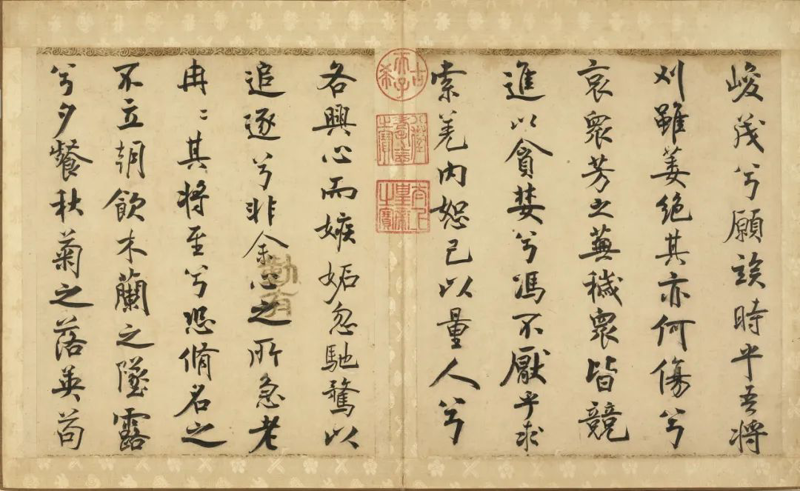 峻茂兮願竢時乎吾將
刈雖萎絕其亦何傷兮
哀眾芳之蕪穢眾皆競
進以貪婪兮馮不厭乎求
索羌内恕己以量人兮
各興心而嫉妬忽馳騖以
追逐兮非余心之所急老
冉〻其將至兮恐脩名之
不立朝飲木蘭之墜露
兮夕餐秋菊之落英苟
古希天子